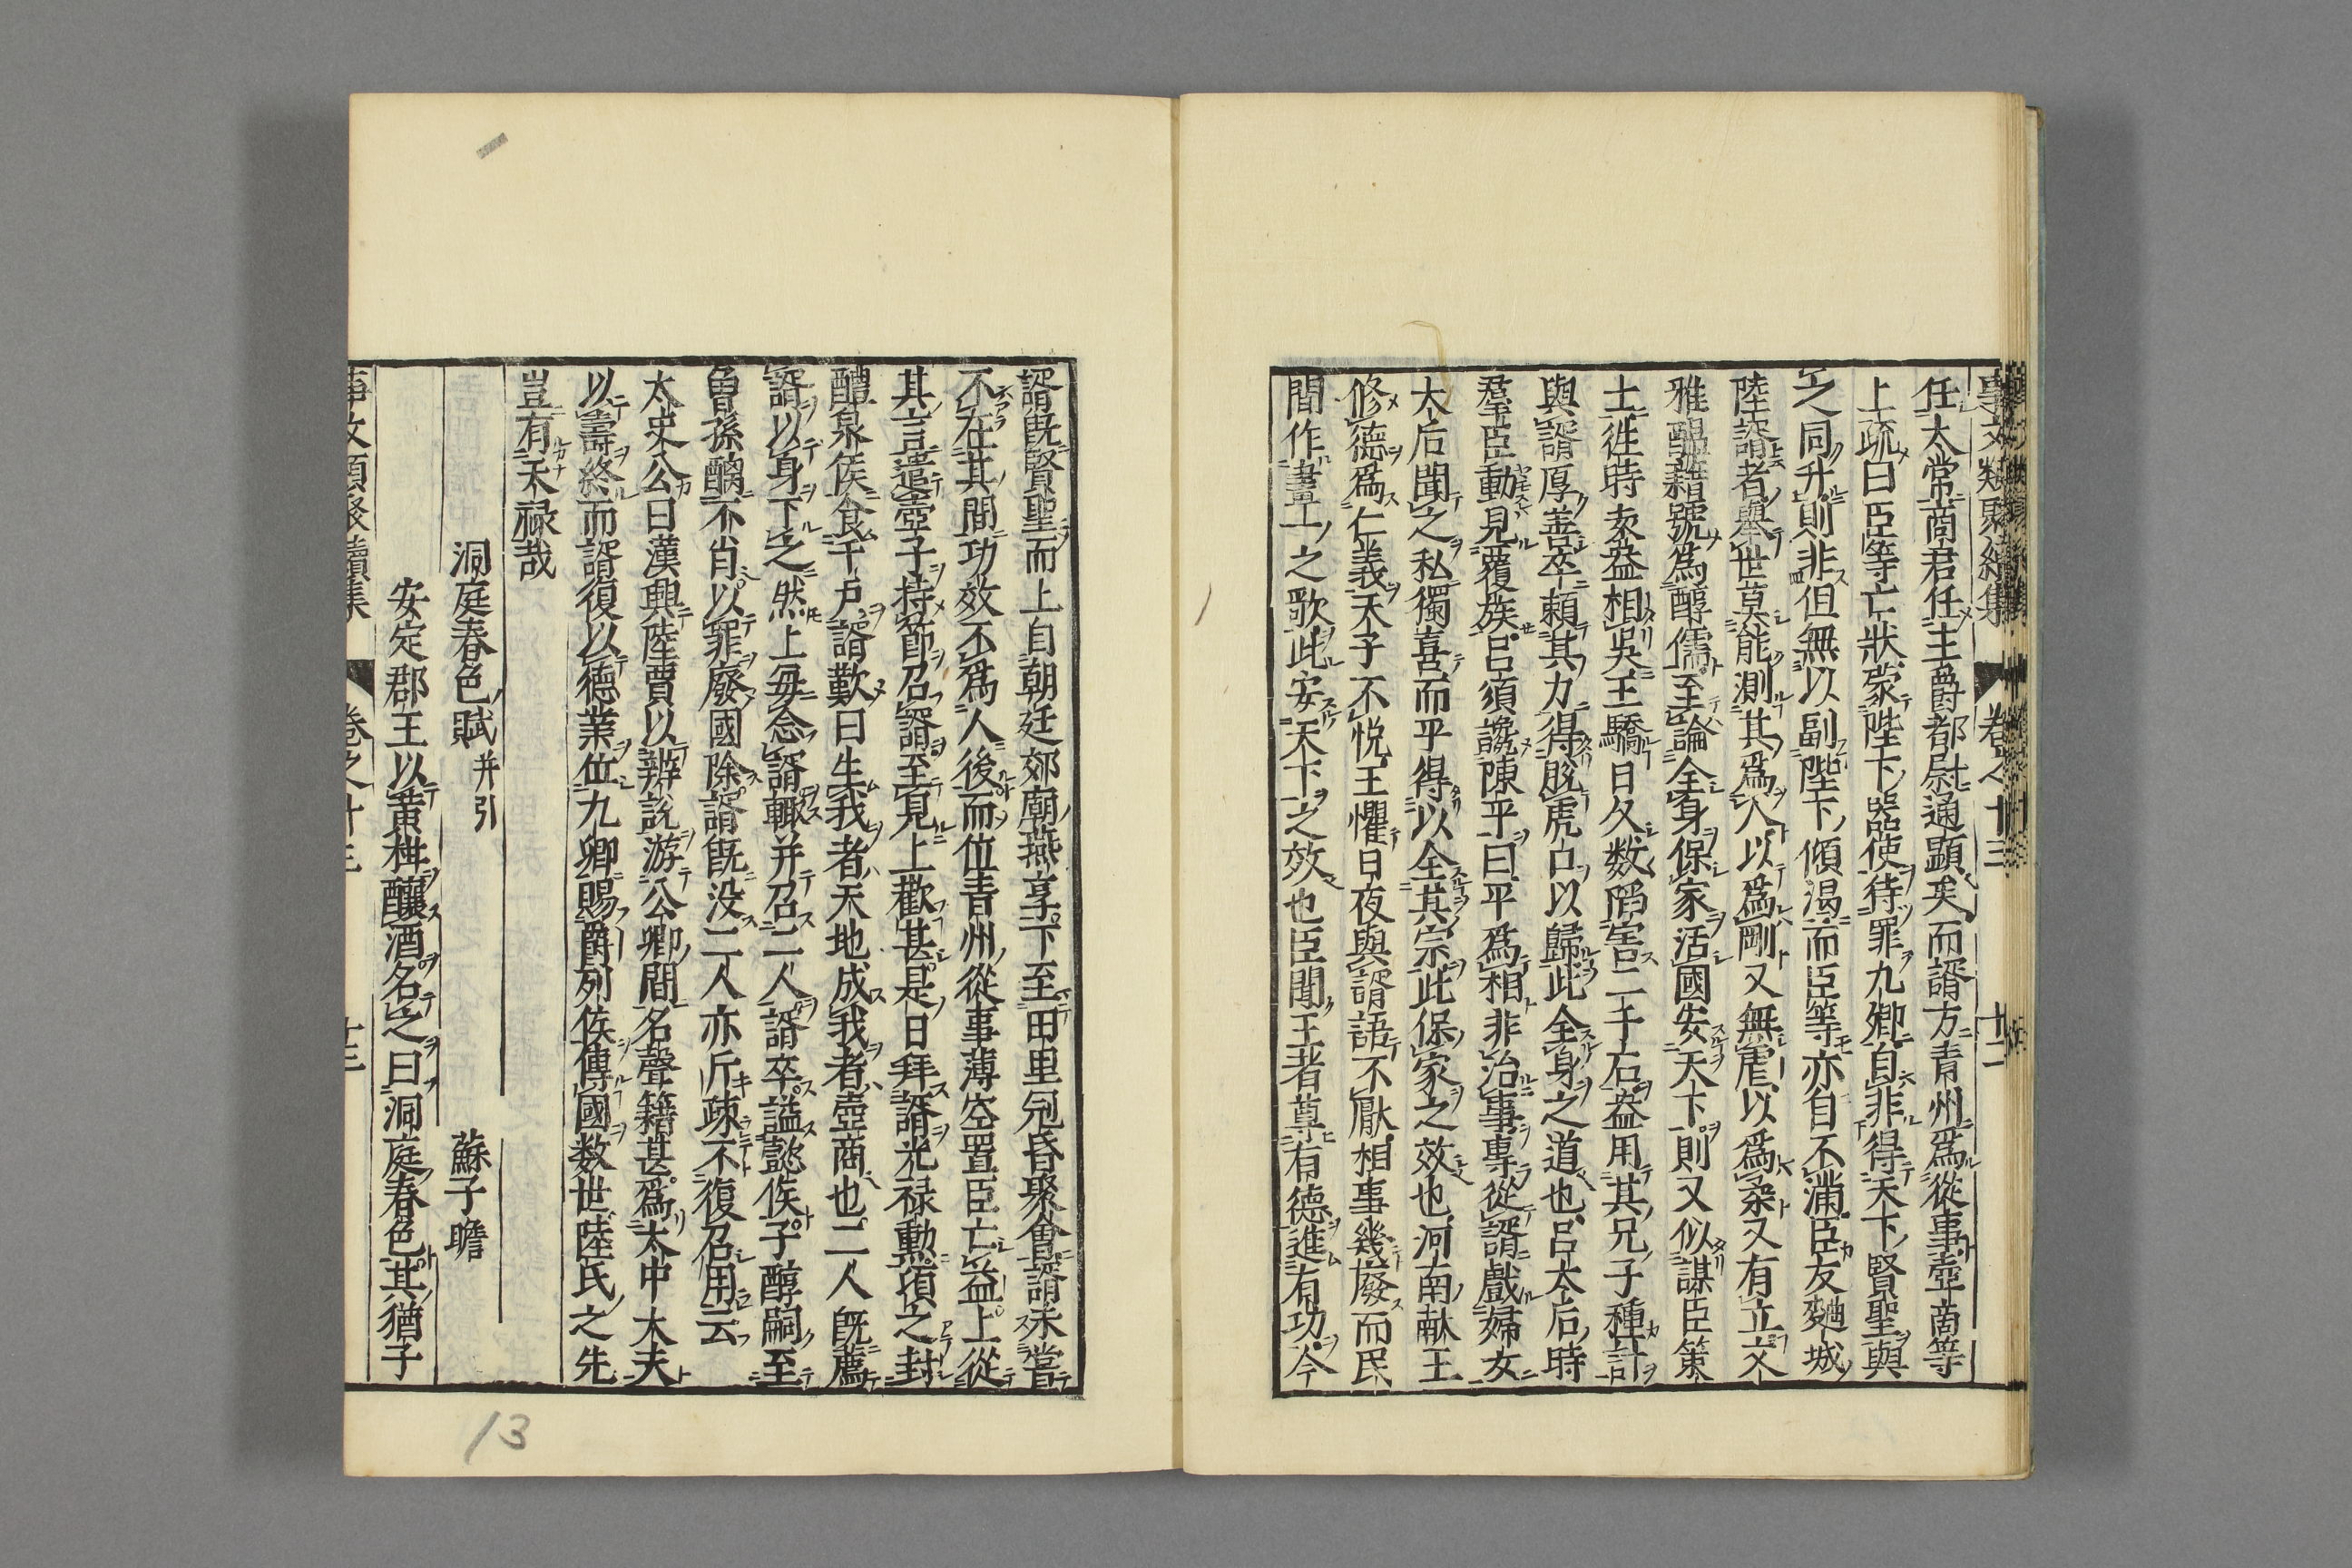 事文類聚續集 卷之十三 十二
任太常商君任主爵都尉通顯矣而諝方青州爲從事壺商等
上疏曰臣等亡狀蒙陛下器使待罪九卿自非得天下賢聖與
之同升則非但無以副陛下傾渴而臣等亦自不滿臣友麹城
陸諝者舉世莫能測其爲人以爲剛又無虐以爲柔又有立文
雅醞藉號爲醇儒至論全身保家活國安天下則又似謀臣策
士徃時袁盎相吳王驕日久数陷害二千石盎用其兄子種計
與諝厚善卒頼其力得脱虎口以歸此全身之道也呂太后時
羣臣動見覆族呂須讒陳平曰平爲相非治事專從諝戲婦女
太后聞之私獨喜而平得以全其宗此保家之效也河南献王
修德爲仁義天子不悦王懼日夜與諝語不厭相事幾廢而民
間作畫一之歌此安天下之效也臣聞王者尊有德進有功今
諝旣賢聖而上自朝廷郊廟燕享下至田里冠昏聚會諝未嘗
不在其間功效不爲人後而位青州從事薄空置臣亡益上從
其言遣壺子持節召諝至見上歡甚是日拜諝光禄勲須之封
醴泉侯食千戸諝歎曰生我者天地成我者壺商也二人旣薦
諝以身下之然上毎念諝輙并召二人諝卒謚懿侯子醇嗣至
曾孫醨不肖以罪廢國除諝旣没二人亦斥疎不復召用云
太史公曰漢興陸賈以辨説游公卿間名聲籍甚爲太中大夫
以壽終而諝復以德業位九卿賜爵列侯傳國数世陸氏之先
豈有天禄哉
洞庭春色賦并引 蘇子瞻
安定郡王以黄柑釀酒名之曰洞庭春色其猶子
事文類聚續集 卷之十三 十三
13